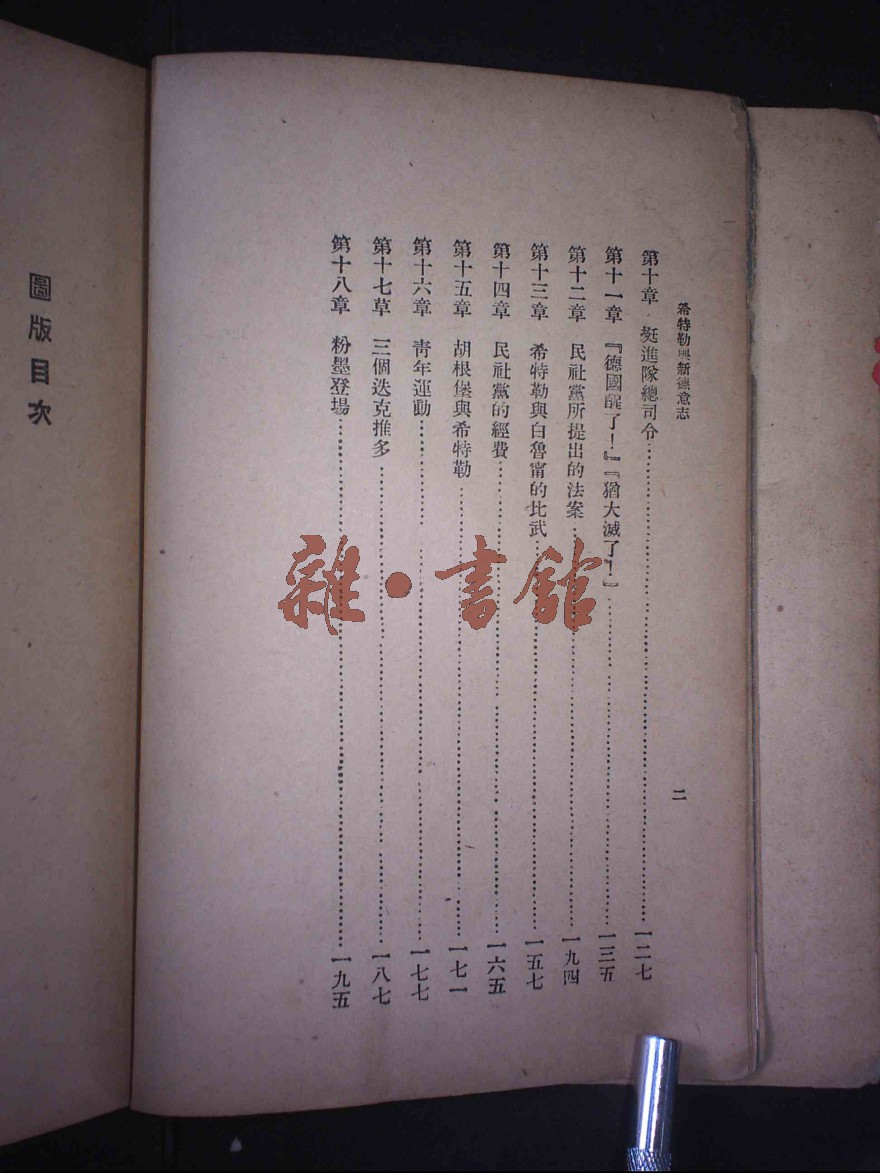 希特勒與新德意志
二
第十章 挺進隊總司令 一二七
第十一章 『德國醒了！』『猶大滅了！』 一三五
第十二章 民社黨所提出的法案 一九四
第十三章 希特勒與白魯甯的比武 一五七
第十四章 民社黨的經費 一六五
第十五章 胡根堡與希特勒 一七一
第十六章 青年運動 一七七
第十七草 三個迭克推多 一八七
第十八章 粉墨登場 一九五
圖版目次
雜·書館